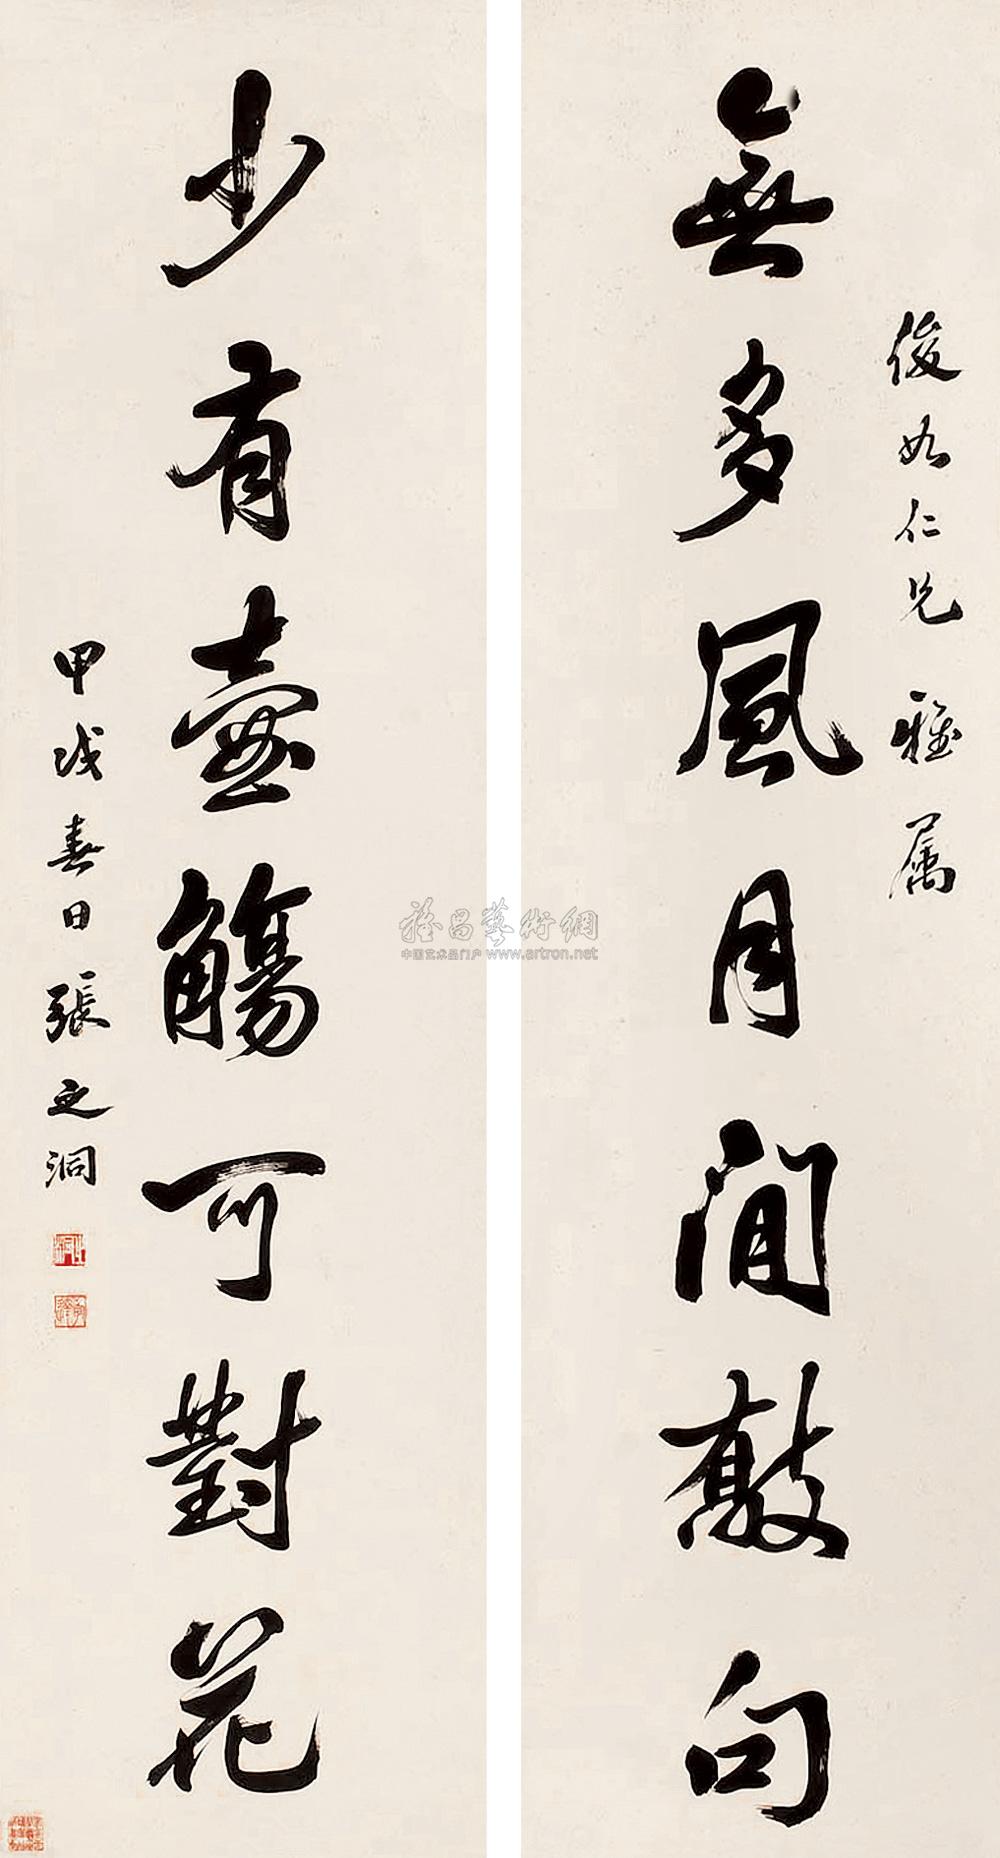 俊如仁兄雅屬
無多風月閒敲句
少有壺觴可對花
甲戌春日張之洞
雅昌藝術網
中国艺术品门户 www.artron.net